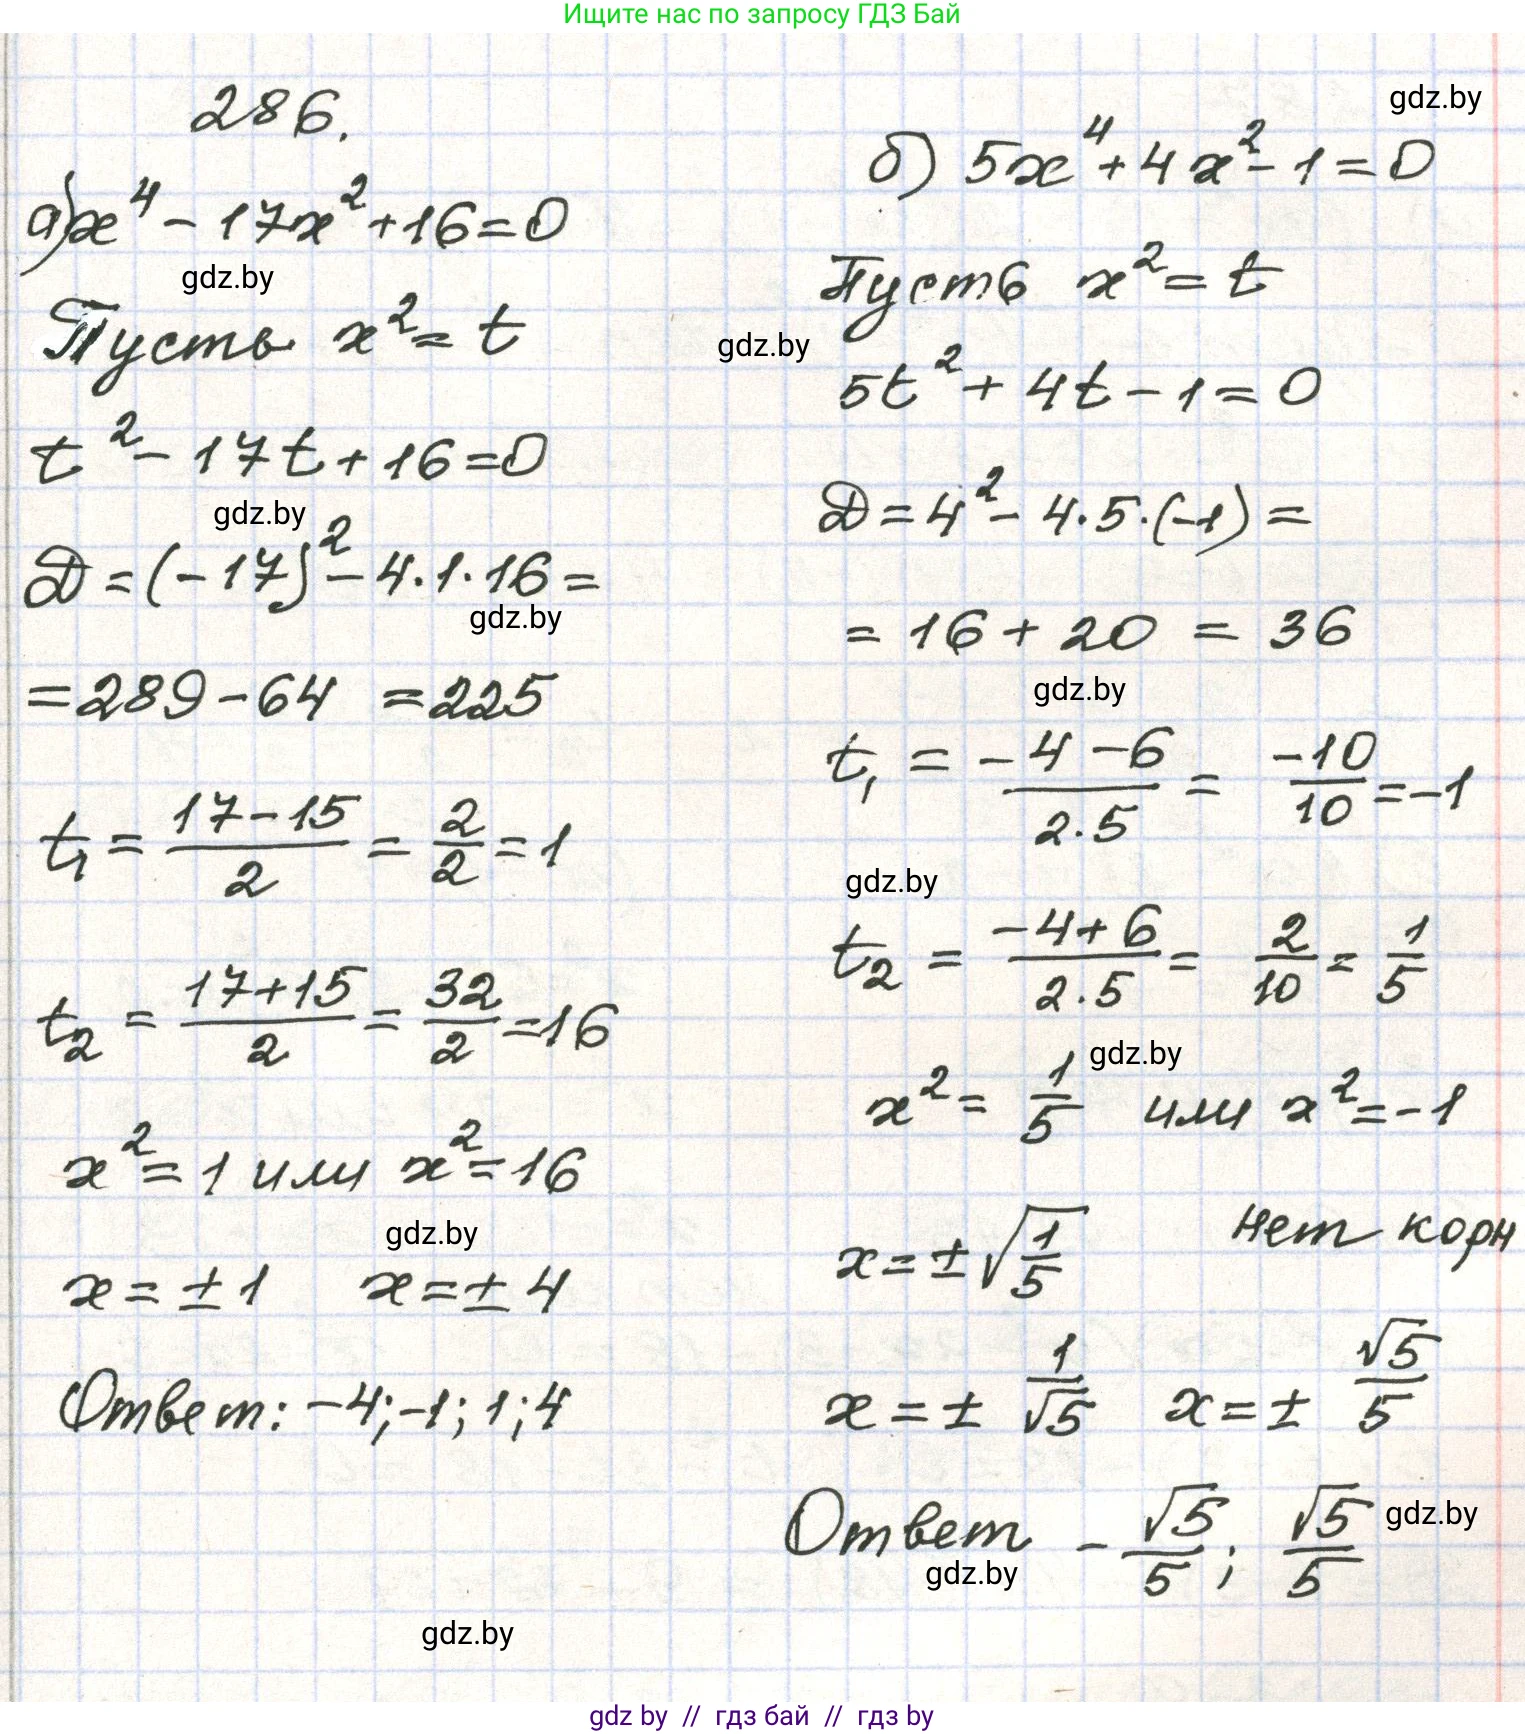 Ищите нас по запросу ГДЗ Бай
286.
а) x⁴ - 17x² + 16 = 0
gdz.by
Пусть x² = t
t² - 17t + 16 = 0
gdz.by
D = (-17)² - 4·1·16 =
gdz.by
= 289 - 64 = 225
t₁ = (17-15)/2 = 2/2 = 1
t₂ = (17+15)/2 = 32/2 = 16
x² = 1 или x² = 16
gdz.by
x = ±1 x = ±4
Ответ: -4; -1; 1; 4
gdz.by
gdz.by
б) 5x⁴ + 4x² - 1 = 0
Пусть x² = t
gdz.by
5t² + 4t - 1 = 0
D = 4² - 4·5·(-1) =
= 16 + 20 = 36
gdz.by
t₁ = (-4-6)/(2·5) = -10/10 = -1
gdz.by
t₂ = (-4+6)/(2·5) = 2/10 = 1/5
gdz.by
x² = 1/5 или x² = -1
x = ±√(1/5) нет корн
x = ± 1/√5 x = ± √5/5
Ответ -√5/5; √5/5
gdz.by
gdz.by
gdz by // гдз бай // гдз by